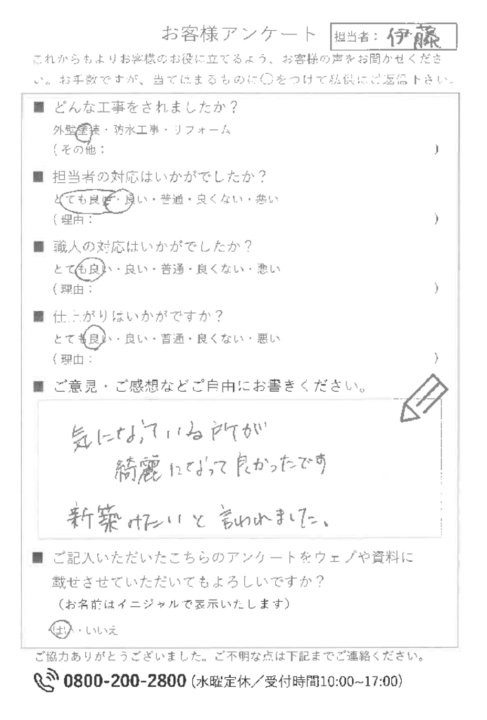 お客様アンケート 担当者： 伊藤
これからもよりお客様のお役に立てるよう、お客様の声をお聞かせくださ
い。お手数ですが、当てはまるものに○をつけて私供にご返信下さい。
■ どんな工事をされましたか？
外壁塗装・防水工事・リフォーム
（その他： ）
■ 担当者の対応はいかがでしたか？
とても良い・良い・普通・良くない・悪い
（理由： ）
■ 職人の対応はいかがでしたか？
とても良い・良い・普通・良くない・悪い
（理由： ）
■ 仕上がりはいかがですか？
とても良い・良い・普通・良くない・悪い
（理由： ）
■ ご意見・ご感想などご自由にお書きください。
気になっている所が
綺麗になって良かったです
新築みたいと言われました。
■ ご記入いただいたこちらのアンケートをウェブや資料に
載せさせていただいてもよろしいですか？
（お名前はイニシャルで表示いたします）
はい・いいえ
ご協力ありがとうございました。ご不明な点は下記までご連絡ください。
0800-200-2800（水曜定休／受付時間10:00~17:00）